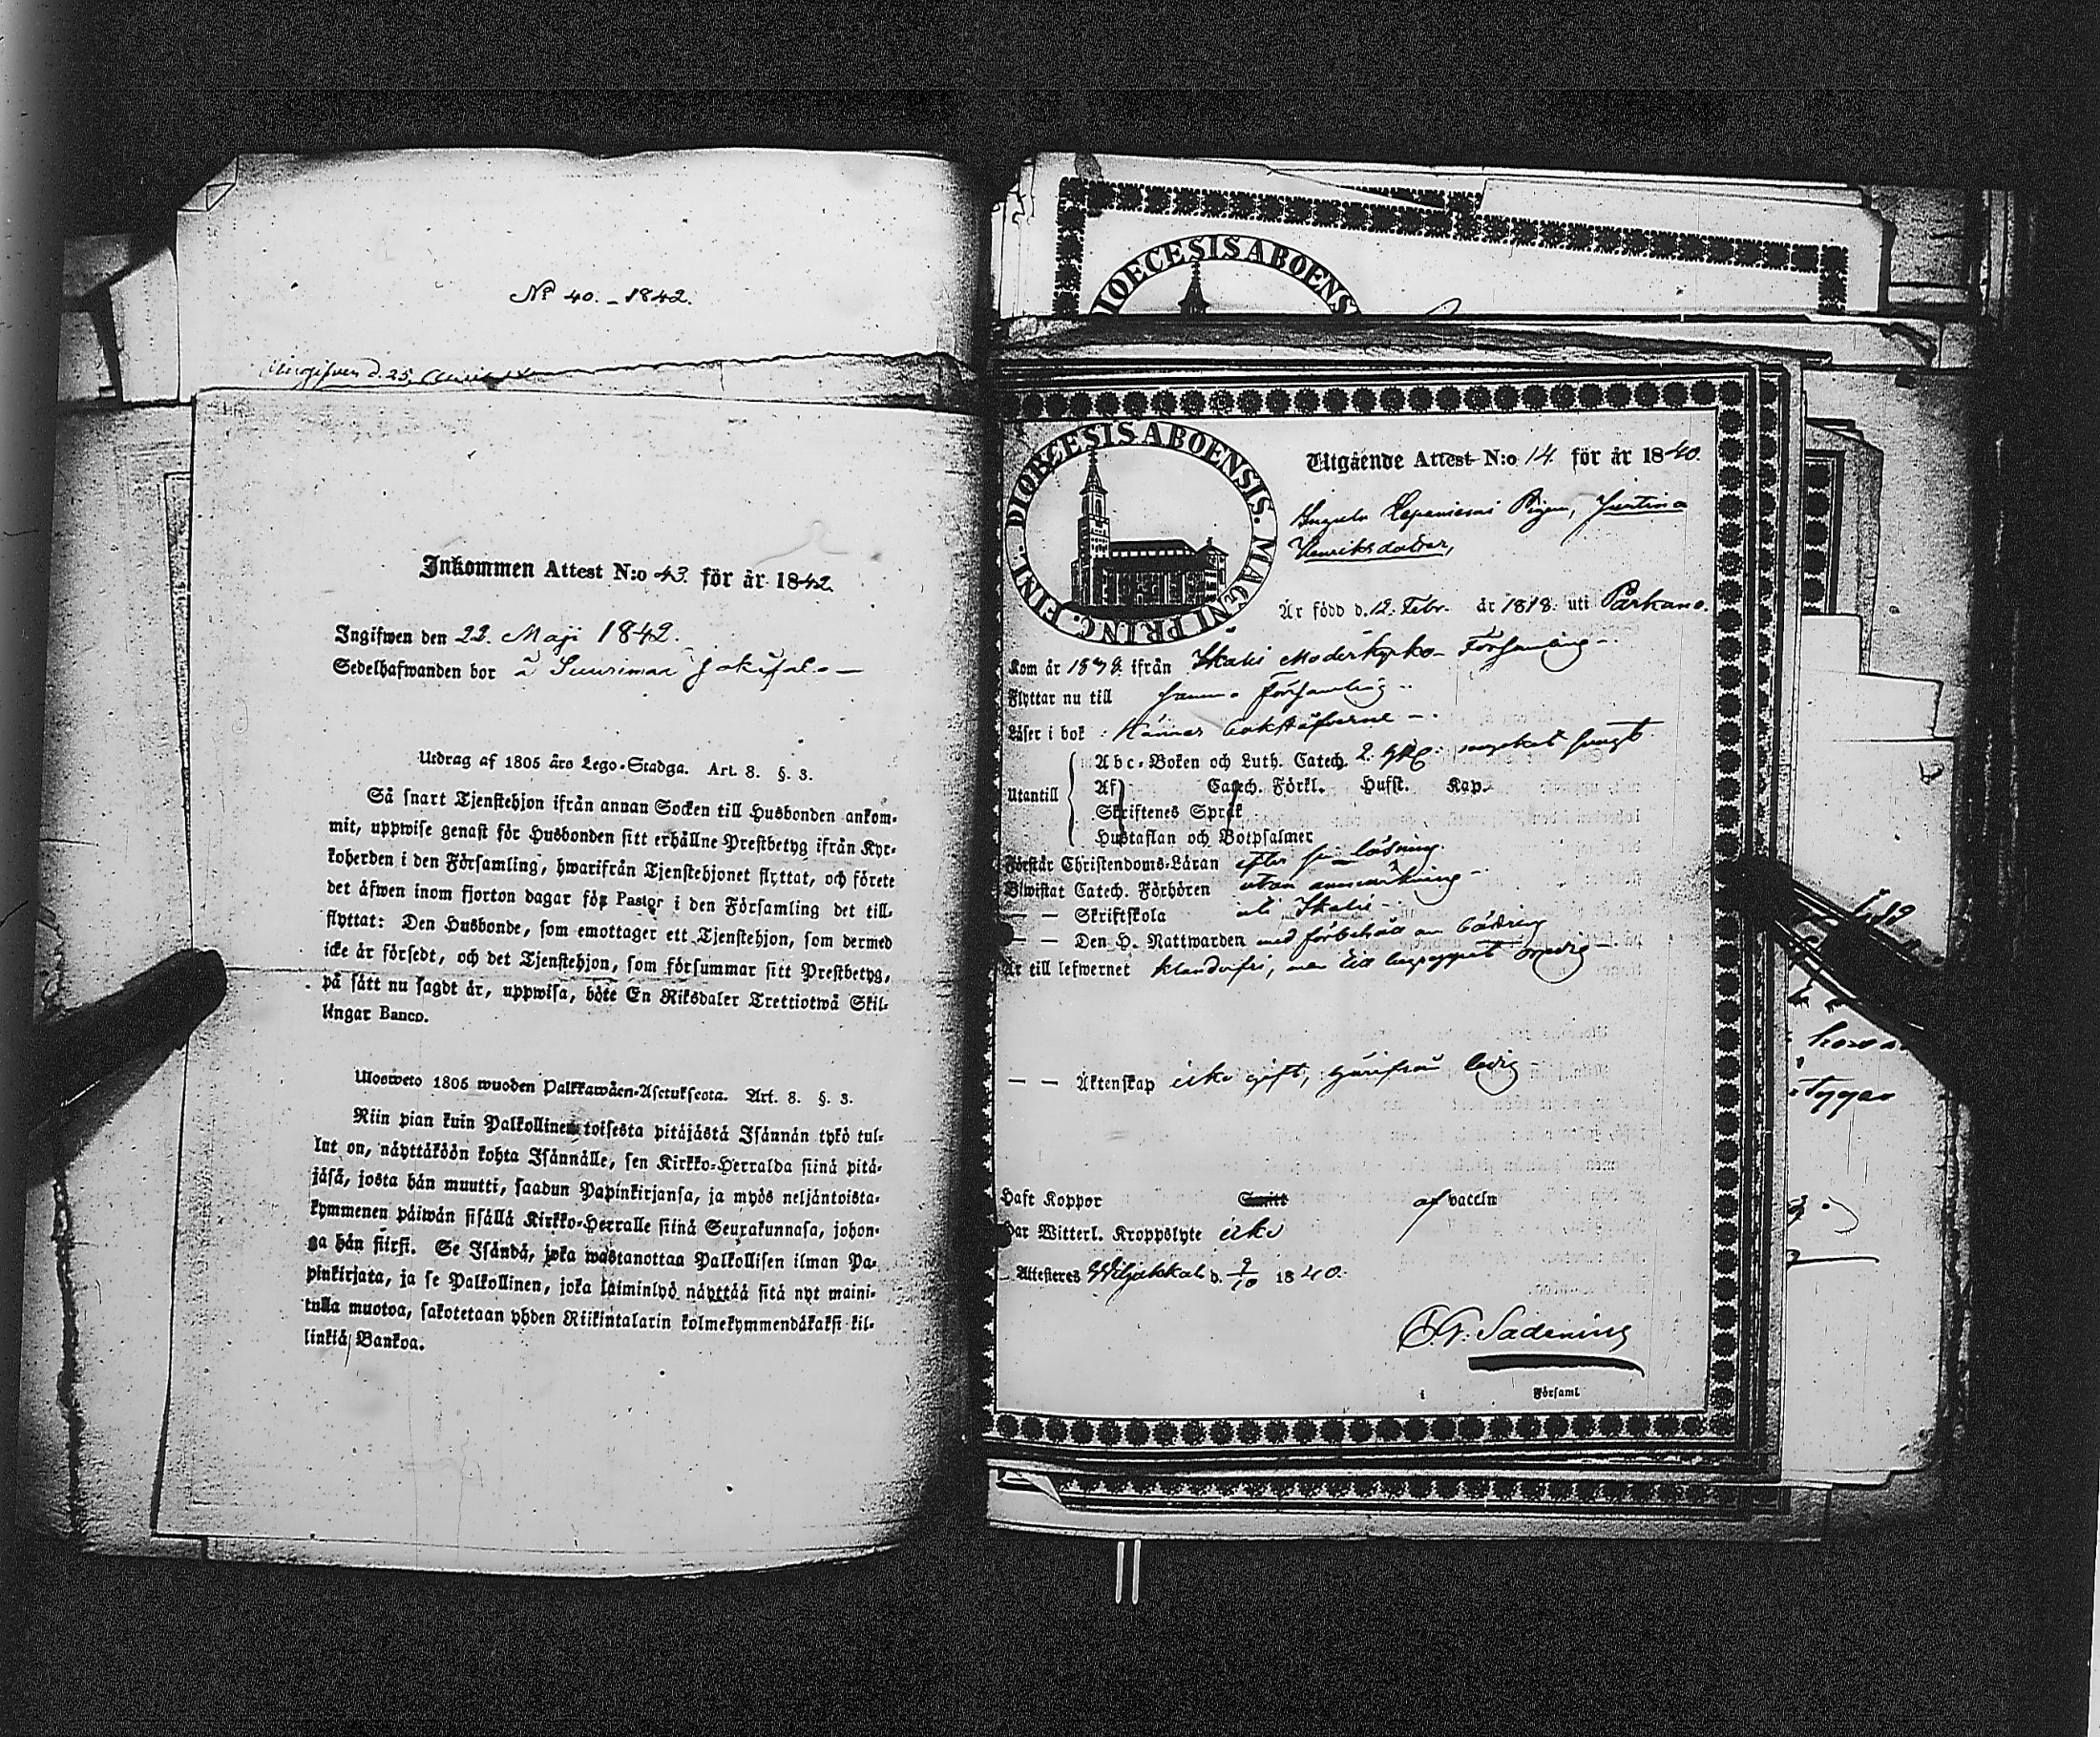 No 40. – 1842.
Ingifven d. 25.
Inkommen Attest N:o 43. för år 1842.
Ingifwen den 22. Maji 1842.
Sedelhafwanden bor å Suurimaa
Utdrag af 1805 års Lego-Stadga. Art. 8. §. 3.
Så snart Tjenstehjon ifrån annan Socken till Husbonden ankom-
mit, uppwise genast för Husbonden sitt erhållne Prestbetyg ifrån Kyr-
koherden i den Församling, hwarifrån Tjenstehjonet flyttat, och förete
det äfwen inom fjorton dagar för Pastor i den Församling det till-
flyttat: Den Husbonde, som emottager ett Tjenstehjon, som dermed
icke är försedt, och det Tjenstehjon, som försummar sitt Prestbetyg,
på sätt nu sagdt är, uppwisa, böte En Riksdaler Trettiotwå Skil-
lingar Banco.
Ulosweto 1805 wuoden Palkkawäen-Asetuksesta. Art. 8. §. 3.
Niin pian kuin Palkollinen toisesta pitäjästä Isännän tykö tul-
lut on, näyttäköön kohta Isännälle, sen Kirkko-Herralda siinä pitä-
jäsä, josta hän muutti, saadun Papinkirjansa, ja myös neljäntoista-
kymmenen päiwän sisällä Kirkko-Herralle siinä Seurakunnasa, johon-
ga hän siirsi. Se Isändä, joka wastanottaa Palkollisen ilman Pa-
pinkirjata, ja se Palkollinen, joka laiminlyö näyttää sitä nyt maini-
tulla muotoa, sakotetaan yhden Riikintalarin kolmekymmendäkaksi kil-
linkiä Bankoa.
DIOECESIS ABOENS
DIOECESIS ABOENSIS. MAGNI PRINC. FINL.
Utgående Attest N:o 14. för år 1840.
Pigan, Justina
Henriksdotter,
Är född d. 12. Febr. år 1818. uti Parkano.
Kom år 1838. ifrån Ikalis Moderkyrko-Församling –
Flyttar nu till samma Församling –
Läser i bok Känner bokstäfverne –
Utantill
Abc-Boken och Luth. Catech. 2. mycket svagt
Af Catech. Förkl. Husst. Kap.
Skriftenes Språk
Hustaflan och Botpsalmer
Förstår Christendoms-Läran efter sin läsning.
Biwistat Catech. Förhören utan anmärkning –
— — Skriftskola uti Ikalis –
— — Den H. Nattwarden med förbehåll om bättring
Är till lefwernet klanderfri, men
— — Äktenskap icke gift, härifrån ledig –
Haft Koppor Smitt af vaccin
Har Witterl. Kroppslyte icke
Attesteras Wiljakkala d. 9/10 1840.
i Församl